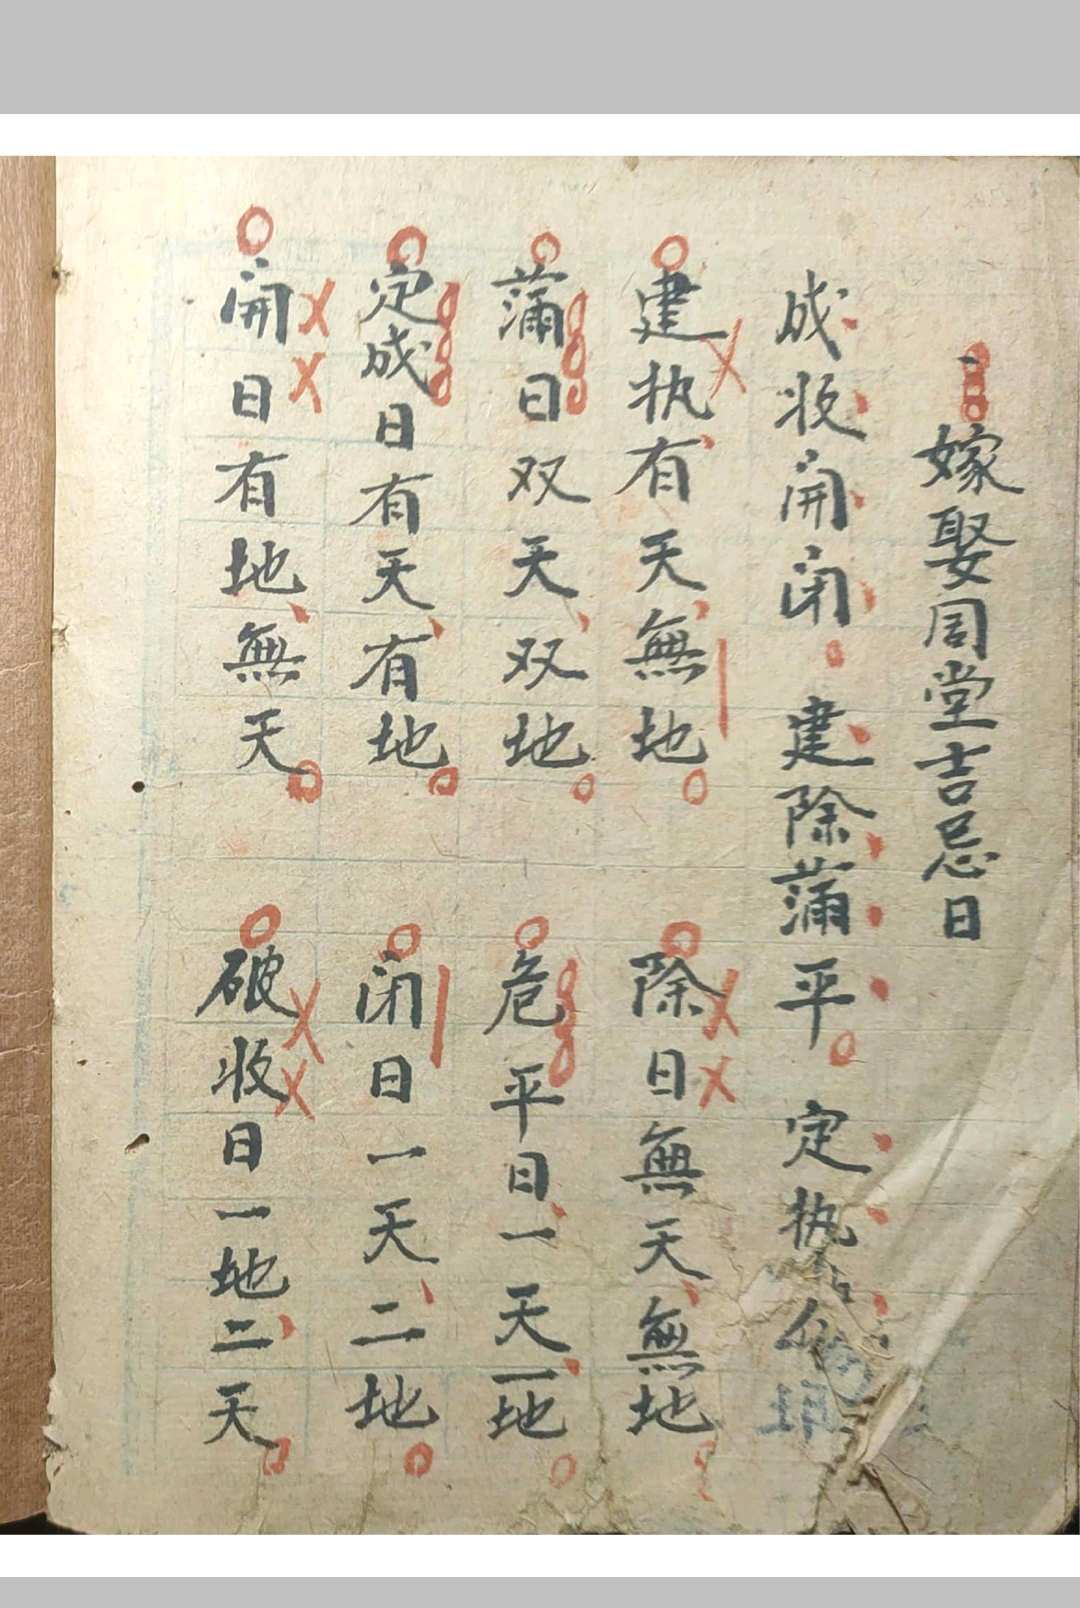 一嫁娶周堂吉忌日
成收開闭 建除蒲平 定执
建执有天無地 除日無天無地
蒲日双天双地 危平日一天一地
定成日有天有地 闭日一天二地
開日有地無天 破收日一地二天